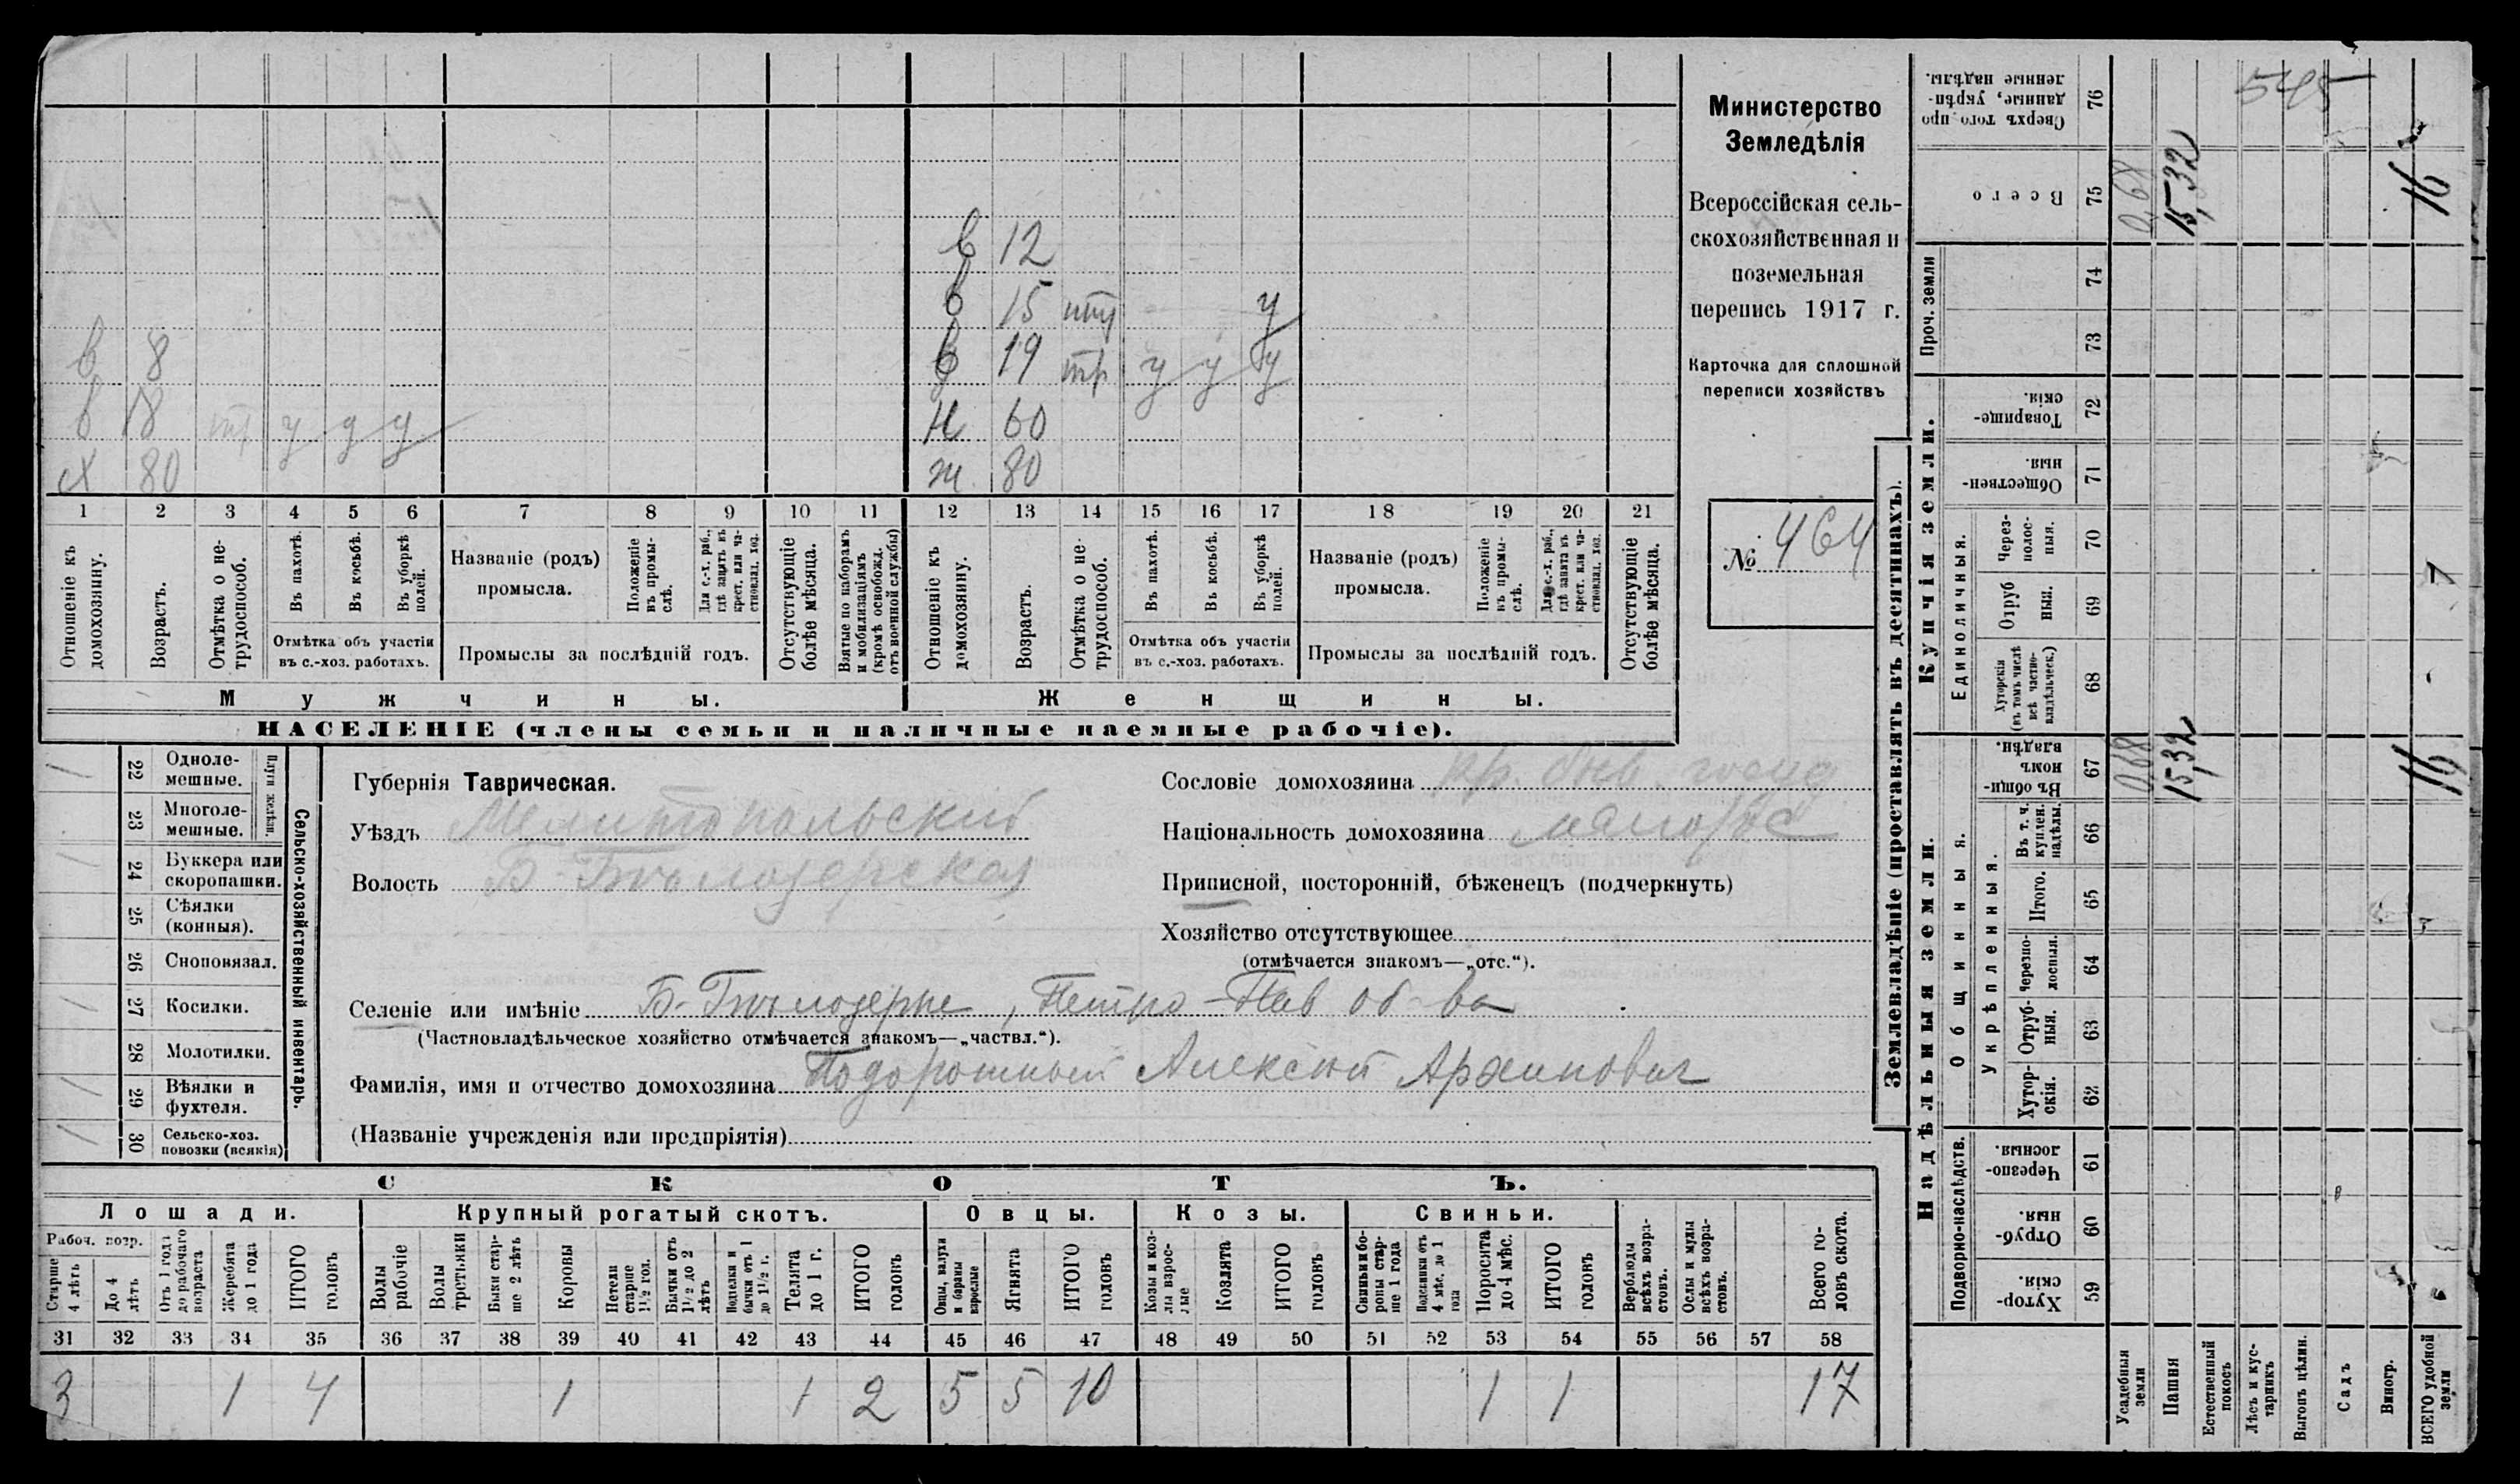 в 12
в 15 ппр у
в 8 в 19 тр у у у
в 18 тр у у у н 60
х 80 ж 80
1 2 3 4 5 6 7 8 9 10 11 12 13 14 15 16 17 18 19 20 21
Отношеніе къ домохозяину.
Возрастъ.
Отмѣтка о не-трудоспособ.
Въ пахотѣ.
Въ косьбѣ.
Въ уборкѣ полей.
Отмѣтка объ участіи
въ с.-хоз. работахъ.
Названіе (родъ)
промысла.
Положеніе въ промы-слѣ.
Для с.-х. раб., гдѣ занятъ въ крест. или ча-стновлад. хоз.
Промыслы за послѣдній годъ.
Отсутствующіе болѣе мѣсяца.
Взятые по наборамъ и мобилизаціямъ (кромѣ освобожд. отъ военной службы)
Отношеніе къ домохозяину.
Возрастъ.
Отмѣтка о не-трудоспособ.
Въ пахотѣ.
Въ косьбѣ.
Въ уборкѣ полей.
Отмѣтка объ участіи
въ с.-хоз. работахъ.
Названіе (родъ)
промысла.
Положеніе въ промы-слѣ.
Для с.-х. раб., гдѣ занята въ крест. или ча-стновлад. хоз.
Промыслы за послѣдній годъ.
Отсутствующіе болѣе мѣсяца.
Мужчины. Женщины.
НАСЕЛЕНІЕ (члены семьи и наличные наемные рабочіе).
Министерство
Земледѣлія
Всероссійская сель-
скохозяйственная и
поземельная
перепись 1917 г.
Карточка для сплошной
переписи хозяйствъ
№ 464
Сельско-хозяйственный инвентарь.
Плуги желѣзн.
/ 22 Одноле-мешные.
23 Многоле-мешные.
/ 24 Буккера или скоропашки.
25 Сѣялки (конныя).
26 Сноповязал.
/ 27 Косилки.
28 Молотилки.
/ 29 Вѣялки и фухтеля.
/ 30 Сельско-хоз. повозки (всякія)
Губернія Таврическая.
Уѣздъ Мелитопольский
Волость Б-Бѣлозерская
Сословіе домохозяина кр. быв. госуд
Національность домохозяина малорос
Приписной, посторонній, бѣженецъ (подчеркнуть)
Хозяйство отсутствующее
(отмѣчается знакомъ—„отс.“).
Селеніе или имѣніе Б-Бѣлозерье, Петро-Пав об-ва
(Частновладѣльческое хозяйство отмѣчается знакомъ—„частвл.“).
Фамилія, имя и отчество домохозяина Подорожный Алексѣй Архипович
(Названіе учрежденія или предпріятія)
СКОТЪ.
Лошади. Крупный рогатый скотъ. Овцы. Козы. Свиньи.
Рабоч. возр.
Старше 4 лѣтъ
До 4 лѣтъ
Отъ 1 года до рабочаго возраста
Жеребята до 1 года
ИТОГО головъ
Волы рабочіе
Волы третьяки
Быки стар-ше 2 лѣтъ
Коровы
Нетели старше 1½ год.
Бычки отъ 1½ до 2 лѣтъ
Подтелки и бычки отъ 1 до 1½ г.
Телята до 1 г.
ИТОГО головъ
Овцы, валухи и бараны взрослые
Ягнята
ИТОГО головъ
Козы и коз-лы взрос-лые
Козлята
ИТОГО головъ
Свиньи и бо-ровы стар-ше 1 года
Подсвинки отъ 4 мѣс. до 1 года
Поросята до 4 мѣс.
ИТОГО головъ
Верблюды всѣхъ возра-стовъ.
Ослы и мулы всѣхъ возра-стовъ.
Всего го-ловъ скота.
31 32 33 34 35 36 37 38 39 40 41 42 43 44 45 46 47 48 49 50 51 52 53 54 55 56 57 58
3 1 4 1 1 2 5 5 10 1 1 17
Землевладѣніе (проставлять въ десятинахъ).
Надѣльныя земли.
Купчія земли.
Проч. земли
Подворно-наслѣдств.
Общинныя.
Укрѣпленныя.
Единоличныя.
Хутор-скія. 59
Отруб-ныя. 60
Черезпо-лосныя. 61
Хутор-скія. 62
Отруб-ныя. 63
Черезпо-лосныя. 64
Итого. 65
Въ т. ч. куплен. надѣлы. 66
Въ общи-номъ владѣн. 67
Хуторскія (въ томъ числѣ всѣ частно-владѣльческ.) 68
Отруб ныя. 69
Через-полос-ныя. 70
Обществен-ныя. 71
Товарище-скія. 72
73
74
Всего 75
Сверхъ того про данные, укрѣп-ленные надѣлы. 76
Усадебныя земли 0,68 0,68
Пашня 15,32 15,32
Естественный покосъ
Лѣсъ и кус-тарникъ
Выгонъ цѣлин.
Садъ
Виногр.
ВСЕГО удобной земли 16 16
545